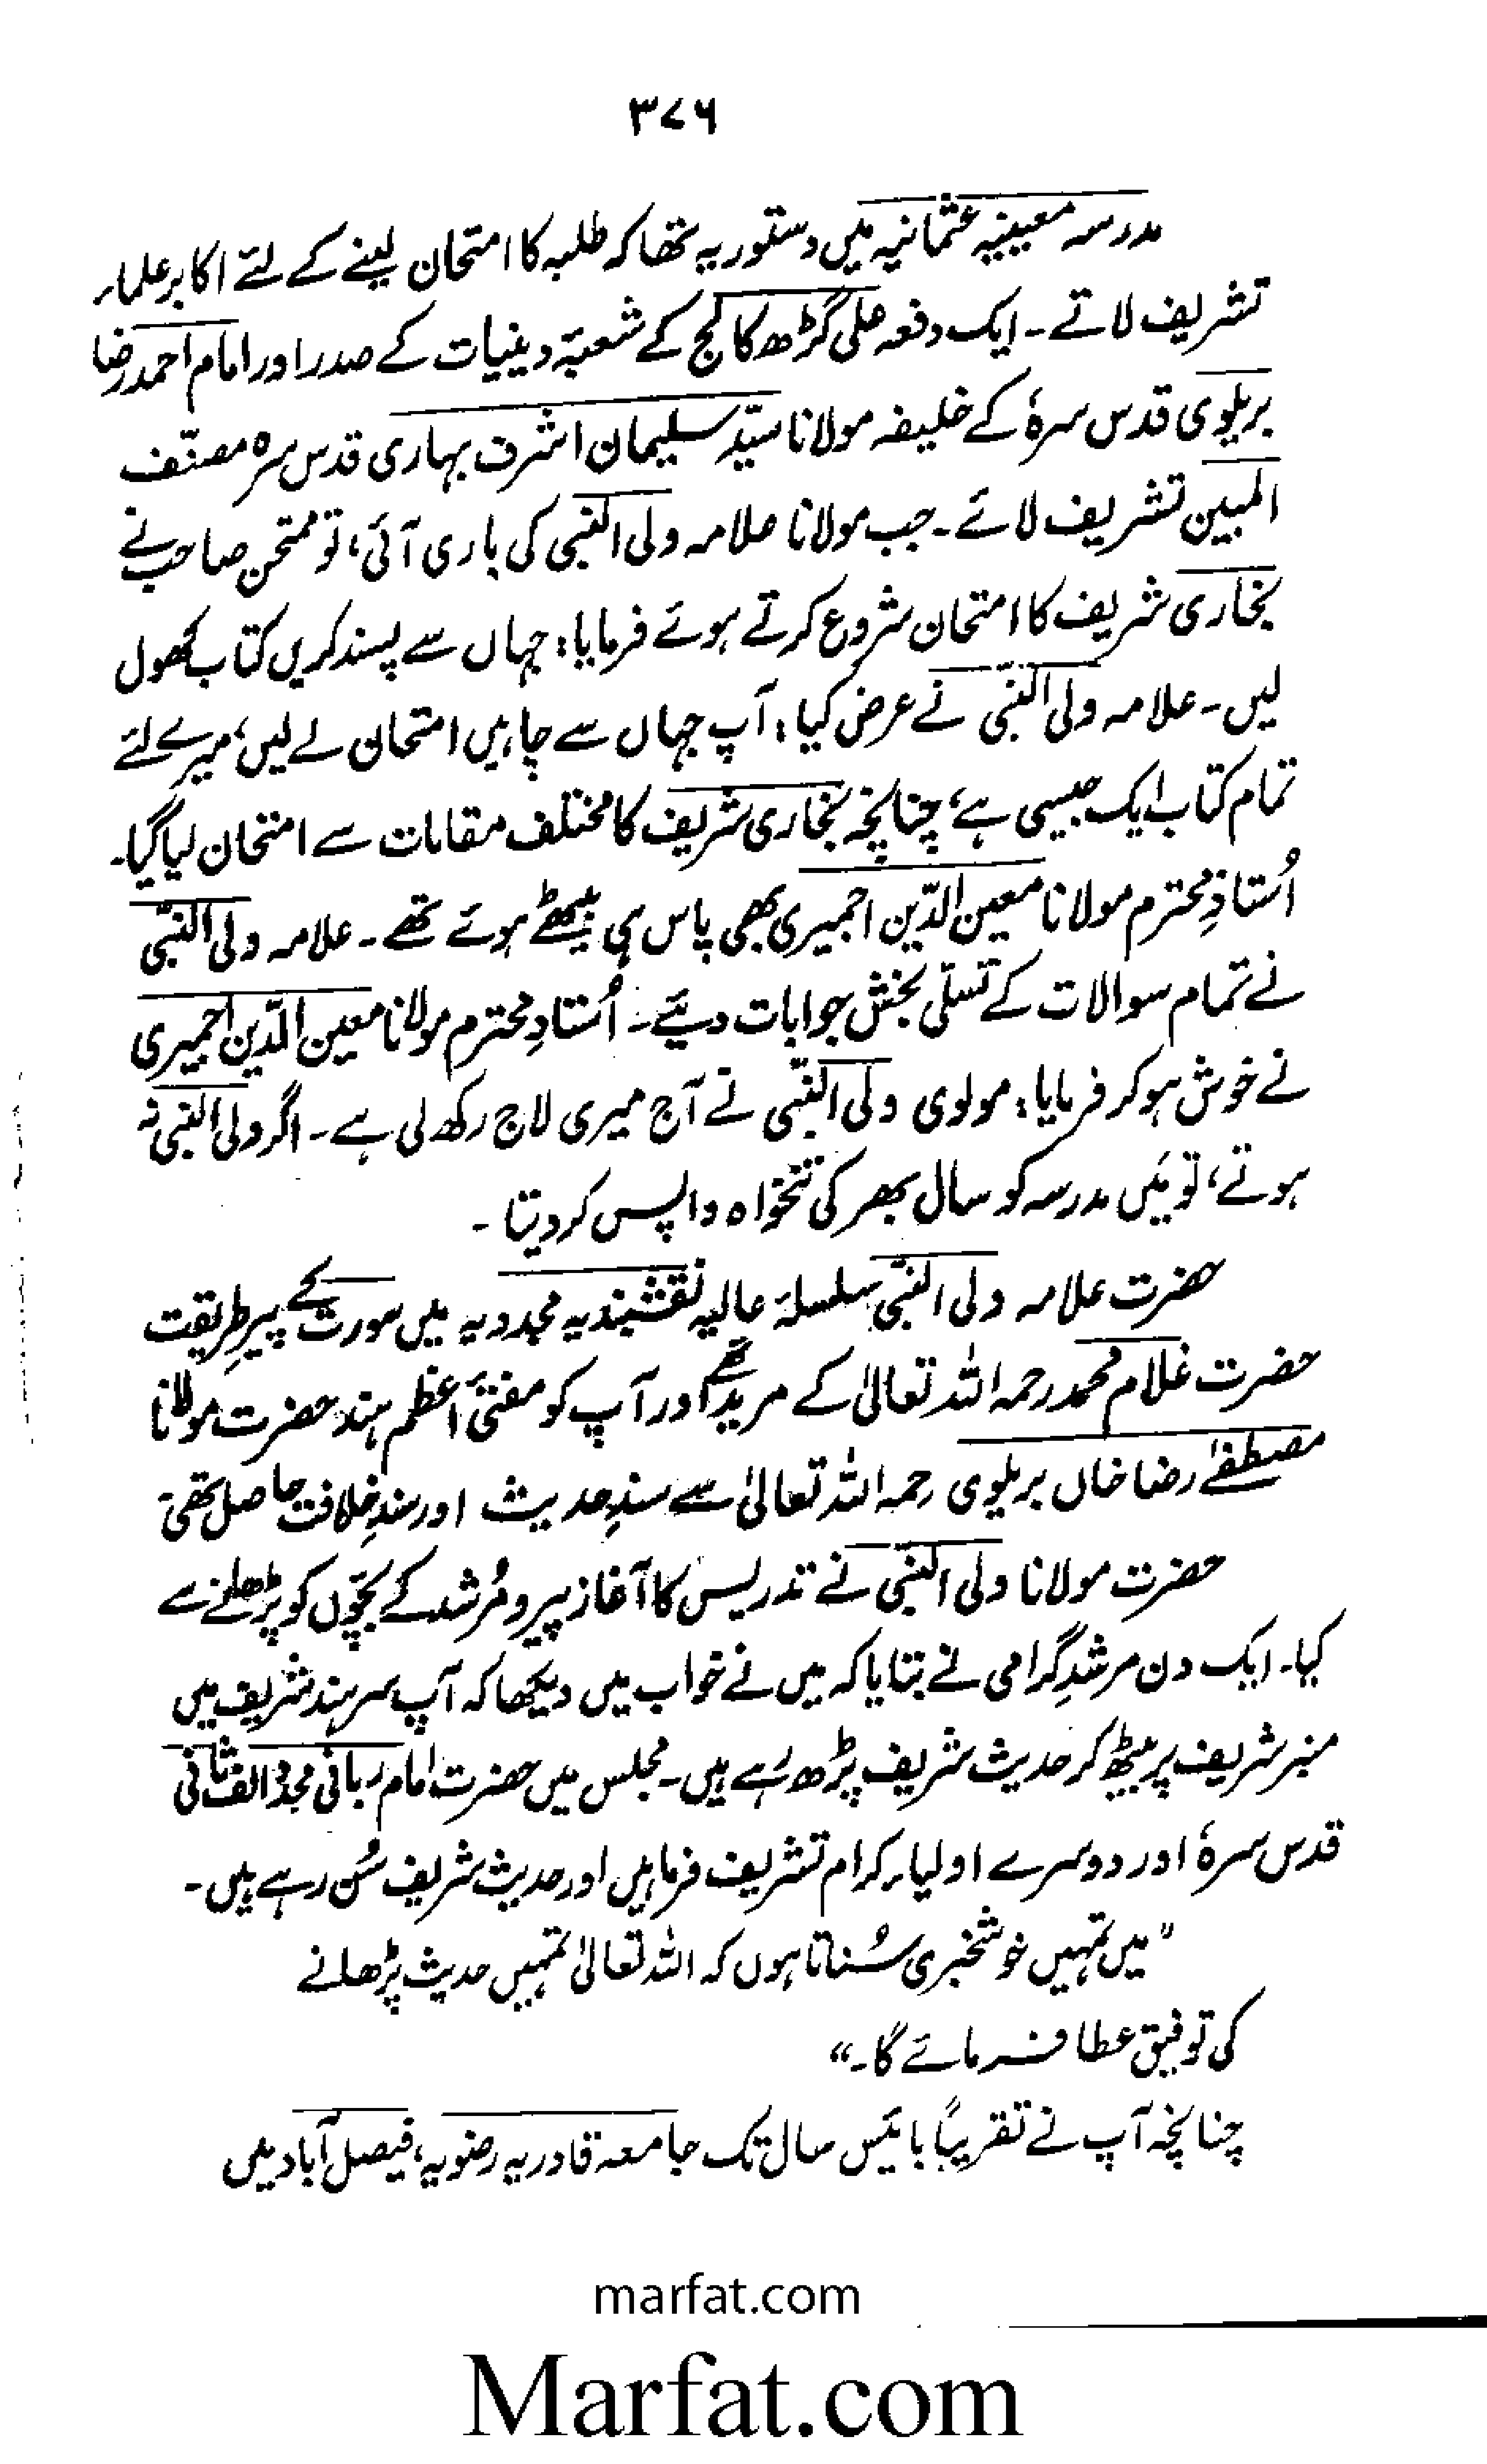 ۳۷۶
مدرسہ معینیہ عثمانیہ میں دستور یہ تھا کہ طلبہ کا امتحان لینے کے لئے اکابر علماء
تشریف لاتے۔ ایک دفعہ علی گڑھ کالج کے شعبۂ دینیات کے صدر اور امام احمد رضا
بریلوی قدس سرہٗ کے خلیفہ مولانا سیّد سلیمان اشرف بہاری قدس سرہ مصنّف
المبین تشریف لائے۔ جب مولانا علامہ ولی النبی کی باری آئی، تو ممتحن صاحب نے
بخاری شریف کا امتحان شروع کرتے ہوئے فرمایا: جہاں سے پسند کریں کتاب کھول
لیں۔ علامہ ولی النبی نے عرض کیا: آپ جہاں سے چاہیں امتحان لے لیں، میرے لئے
تمام کتاب ایک جیسی ہے، چنانچہ بخاری شریف کا مختلف مقامات سے امتحان لیا گیا۔
اُستاذِ محترم مولانا معین الدّین اجمیری بھی پاس ہی بیٹھے ہوئے تھے۔ علامہ ولی النبی
نے تمام سوالات کے تسلّی بخش جوابات دیئے۔ اُستاذِ محترم مولانا معین الدّین اجمیری
نے خوش ہو کر فرمایا: مولوی ولی النبی نے آج میری لاج رکھ لی ہے۔ اگر ولی النبی نہ
ہوتے، تو مَیں مدرسہ کو سال بھر کی تنخواہ واپس کر دیتا۔
حضرت علامہ ولی النبی سلسلۂ عالیہ نقشبندیہ مجددیہ میں سورت کے پیرِ طریقت
حضرت غلام محمد رحمہ اللہ تعالیٰ کے مرید تھے اور آپ کو مفتیٔ اعظم ہند حضرت مولانا
مصطفےٰ رضا خاں بریلوی رحمہ اللہ تعالیٰ سے سندِ حدیث اور سندِ خلافت حاصل تھی۔
حضرت مولانا ولی النبی نے تدریس کا آغاز پیر و مُرشد کے بچّوں کو پڑھانے سے
کیا۔ ایک دن مرشدِ گرامی نے بتایا کہ میں نے خواب میں دیکھا کہ آپ سرہند شریف میں
منبر شریف پر بیٹھ کر حدیث شریف پڑھ رہے ہیں۔ مجلس میں حضرت امام ربانی مجدد الف ثانی
قدس سرہٗ اور دوسرے اولیاء کرام تشریف فرما ہیں اور حدیث شریف سُن رہے ہیں۔
"میں تمہیں خوشخبری سُناتا ہوں کہ اللہ تعالیٰ تمہیں حدیث پڑھانے
کی توفیق عطا فرمائے گا۔"
چنانچہ آپ نے تقریباً بائیس سال تک جامعہ قادریہ رضویہ، فیصل آباد میں
marfat.com
Marfat.com